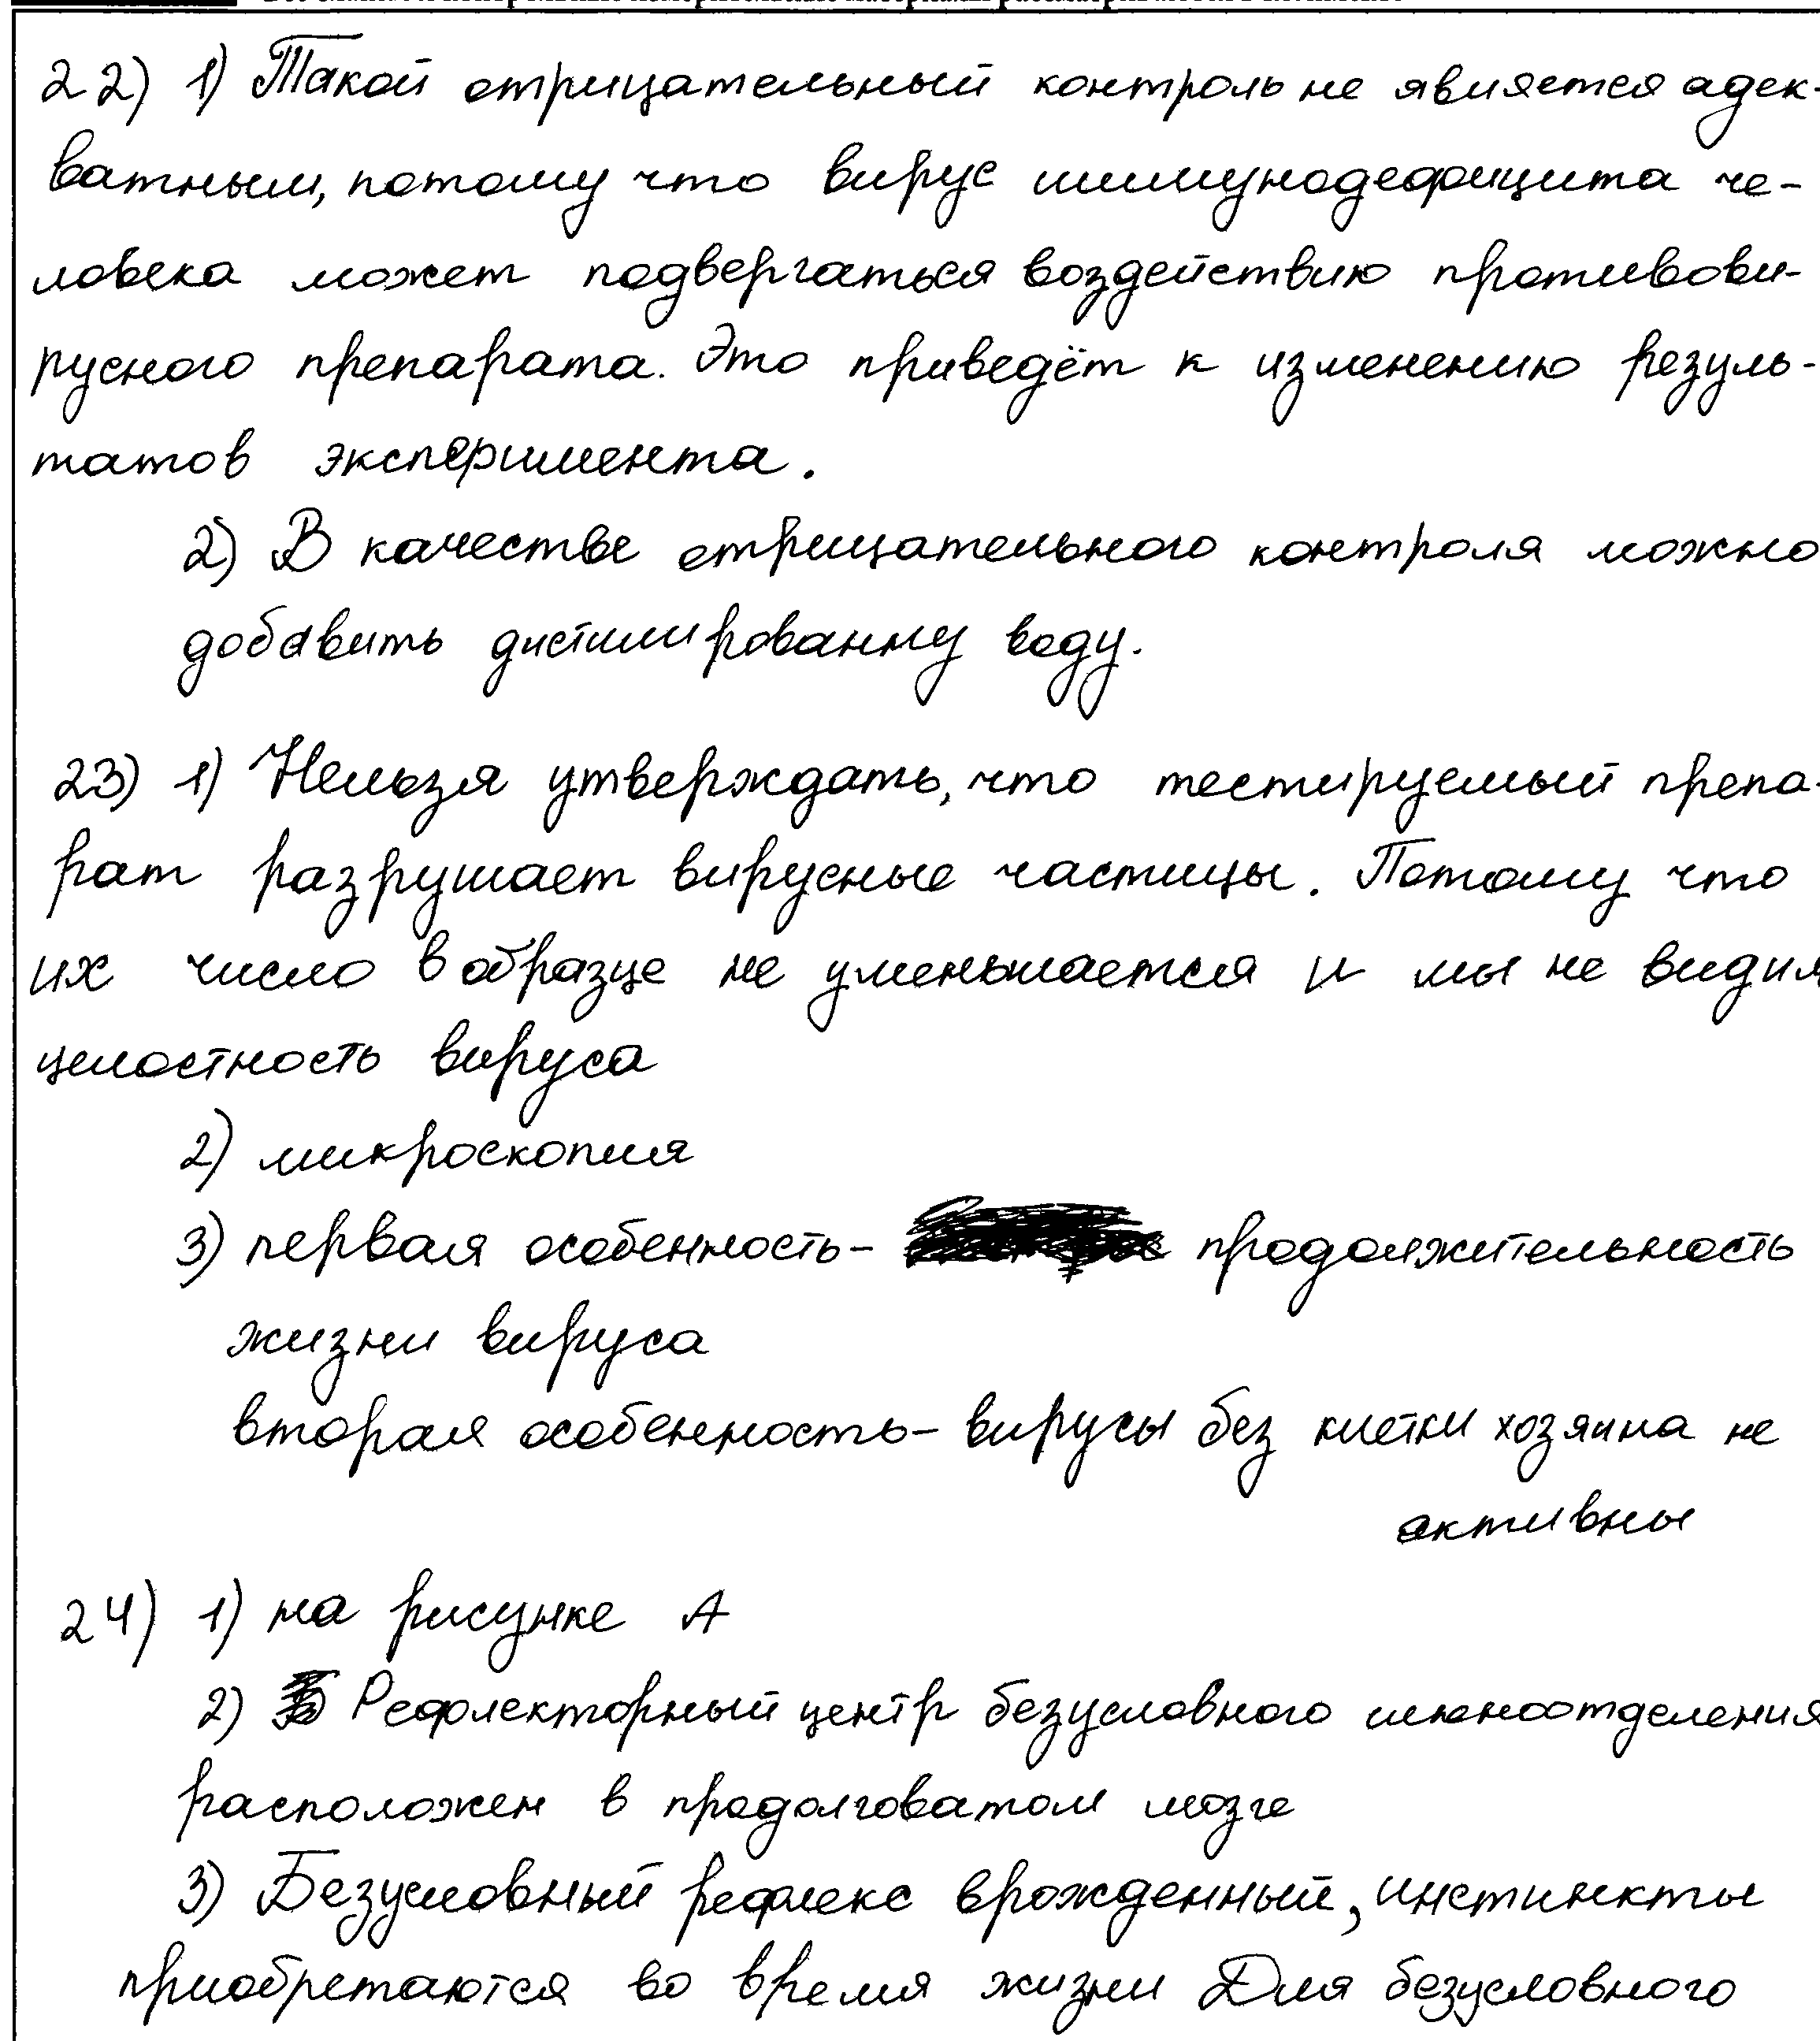 22) 1) Такой отрицательный контроль не является адек-
ватным, потому что вирус иммунодефицита че-
ловека может подвергаться воздействию противови-
русного препарата. Это приведёт к изменению резуль-
татов эксперимента.
2) В качестве отрицательного контроля можно
добавить дистилированну воду.
23) 1) Нельзя утверждать, что тестируемый препа-
рат разрушает вирусные частицы. Потому что
их число в образце не уменьшается и мы не видим
целостность вируса
2) микроскопия
3) первая особенность- продолжительность
жизни вируса
вторая особенность- вирусы без клетки хозяина не
активны
24) 1) на рисунке А
2) Рефлекторный центр безусловного слюноотделения
расположен в продолговатом мозге
3) Безусловный рефлекс врожденный, инстинкты
приобретаются во время жизни Для безусловного